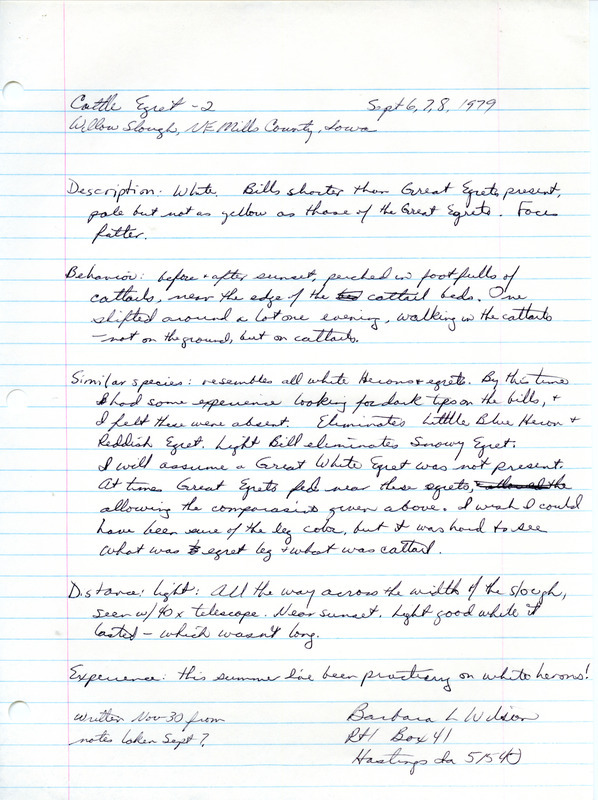 Cattle Egret - 2 Sept 6, 7, 8, 1979
Willow Slough, NE Mills County, Iowa
Description: White. Bills shorter than Great Egrets present,
pale but not as yellow as those of the Great Egrets. Faces
fatter.
Behavior: before + after sunset, perched in footfulls of
cattails, near the edge of the cattail beds. One
shifted around a lot one evening, walking in the cattails
- not on the ground, but on cattails.
Similar species: resembles all white Herons + egrets. By this time
I had some experience looking for dark tips on the bills, +
I felt these were absent. Eliminates Little Blue Heron +
Reddish Egret. Light Bill eliminates Snowy Egret.
I will assume a Great White Egret was not present.
At times Great Egrets fed near these egrets,
allowing the comparasins given above. I wish I could
have been sure of the leg color, but it was hard to see
what was egret leg + what was cattail.
Distance; light: All the way across the width of the slough,
seen w/ 40x telescope. Near sunset. Light good while it
lasted - which wasn't long.
Experience: this summer I've been practicing on white herons!
Written Nov 30 from Barbara L Wilson
notes taken Sept 7. Rt 1 Box 41
Hastings Ia 51540